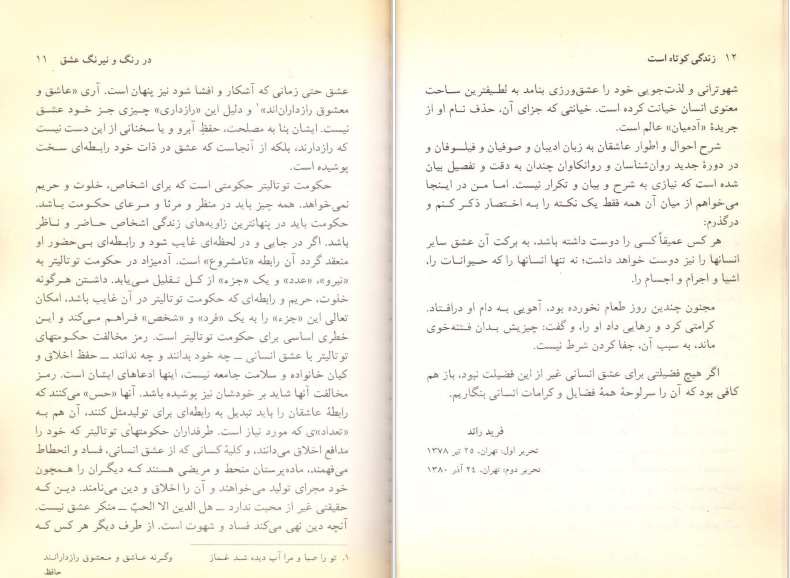 در رنگ و نیرنگ عشق ۱۱
عشق حتی زمانی که آشکار و افشا شود نیز پنهان است. آری «عاشق و
معشوق رازداران‌اند»۱ و دلیل این «رازداری» چیزی جز خود عشق
نیست. ایشان بنا به مصلحت، حفظ آبرو و یا سخنانی از این دست نیست
که رازدارند، بلکه از آنجاست که عشق در ذات خود رابطه‌ای سخت
پوشیده است.
حکومت توتالیتر حکومتی است که برای اشخاص، خلوت و حریم
نمی‌خواهد. همه چیز باید در منظر و مرثا و مرعای حکومت باشد.
حکومت باید در پنهانترین زاویه‌های زندگی اشخاص حاضر و ناظر
باشد. اگر در جایی و در لحظه‌ای غایب شود و رابطه‌ای بی‌حضور او
منعقد گردد آن رابطه «نامشروع» است. آدمیزاد در حکومت توتالیتر به
«نیرو»، «عدد» و یک «جزء» از کل تقلیل می‌یابد. داشتن هرگونه
خلوت، حریم و رابطه‌ای که حکومت توتالیتر در آن غایب باشد، امکان
تعالی این «جزء» را به یک «فرد» و «شخص» فراهم می‌کند و این
خطری اساسی برای حکومت توتالیتر است. رمز مخالفت حکومتهای
توتالیتر با عشق انسانی ــ چه خود بدانند و چه ندانند ــ حفظ اخلاق و
کیان خانواده و سلامت جامعه نیست، اینها ادعاهای ایشان است. رمز
مخالفت آنها شاید بر خودشان نیز پوشیده باشد. آنها «حس» می‌کنند که
رابطهٔ عاشقان را باید تبدیل به رابطه‌ای برای تولیدمثل کنند، آن هم به
«تعداد»ی که مورد نیاز است. طرفداران حکومتهای توتالیتر که خود را
مدافع اخلاق می‌دانند، و کلیهٔ کسانی که از عشق انسانی، فساد و انحطاط
می‌فهمند، ماده‌پرستان منحط و مریضی هستند که دیگران را همچون
خود مجرای تولید می‌خواهند و آن را اخلاق و دین می‌نامند. دین که
حقیقتی غیر از محبت ندارد ــ هل الدین الا الحبّ ــ منکر عشق نیست.
آنچه دین نهی می‌کند فساد و شهوت است. از طرف دیگر هر کس که
۱. تو را صبا و مرا آب دیده شد غماز وگرنه عاشق و معشوق رازدارانند
حافظ
۱۲ زندگی کوتاه است
شهوترانی و لذت‌جویی خود را عشق‌ورزی بنامد به لطیفترین ساحت
معنوی انسان خیانت کرده است. خیانتی که جزای آن، حذف نام او از
جریدهٔ «آدمیان» عالم است.
شرح احوال و اطوار عاشقان به زبان ادیبان و صوفیان و فیلسوفان و
در دورهٔ جدید روان‌شناسان و روانکاوان چندان به دقت و تفصیل بیان
شده است که نیازی به شرح و بیان و تکرار نیست. اما من در اینجا
می‌خواهم از میان آن همه فقط یک نکته را به اختصار ذکر کنم و
درگذرم:
هر کس عمیقاً کسی را دوست داشته باشد، به برکت آن عشق سایر
انسانها را نیز دوست خواهد داشت؛ نه تنها انسانها را که حیوانات را،
اشیا و اجرام و اجسام را.
مجنون چندین روز طعام نخورده بود، آهویی به دام او درافتاد.
کرامتی کرد و رهایی داد او را، و گفت: چیزیش بدان فتنه‌خوی
ماند، به سبب آن، جفا کردن شرط نیست.
اگر هیچ فضیلتی برای عشق انسانی غیر از این فضیلت نبود، باز هم
کافی بود که آن را سرلوحهٔ همهٔ فضایل و کرامات انسانی بنگاریم.
فرید راند
تحریر اول: تهران، ۲۵ تیر ۱۳۷۸
تحریر دوم: تهران، ۲۴ آذر ۱۳۸۰